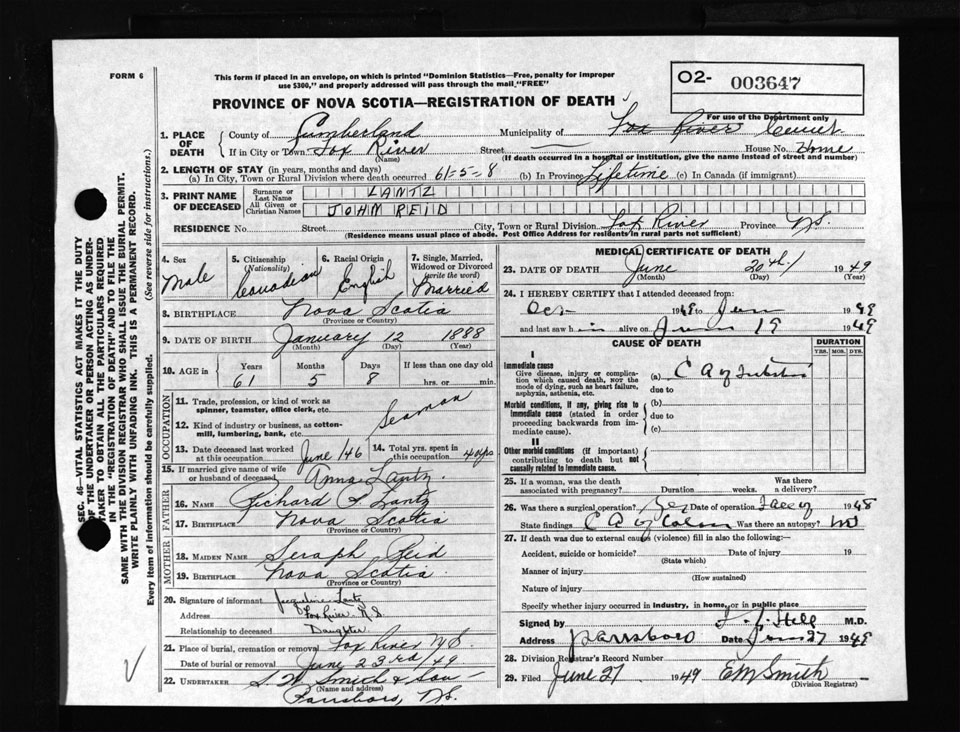 FORM 6
This form if placed in an envelope, on which is printed "Dominion Statistics—Free, penalty for improper
use $300," and properly addressed will pass through the mail "FREE"
O2- 003647
For use of the Department only
PROVINCE OF NOVA SCOTIA—REGISTRATION OF DEATH
1. PLACE OF DEATH
County of Cumberland Municipality of Fox River
If in City or Town Fox River Street House No. Home
(Name) (If death occurred in a hospital or institution, give the name instead of street and number)
2. LENGTH OF STAY (in years, months and days)
(a) In City, Town or Rural Division where death occurred 61-5-8 (b) In Province Lifetime (c) In Canada (if immigrant)
3. PRINT NAME OF DECEASED
Surname or Last Name LANTZ
All Given or Christian Names JOHM REID
RESIDENCE No. Street City, Town or Rural Division Fox River Province N.S.
(Residence means usual place of abode. Post Office Address for residents in rural parts not sufficient)
4. Sex Male
5. Citizenship (Nationality) Canadian
6. Racial Origin English
7. Single, Married, Widowed or Divorced (write the word) Married
8. BIRTHPLACE Nova Scotia
(Province or Country)
9. DATE OF BIRTH January 12 1888
(Month) (Day) (Year)
10. AGE Years 61 Months 5 Days 8 If less than one day old
hrs. or min.
OCCUPATION
11. Trade, profession, or kind of work as
spinner, teamster, office clerk, etc. Seaman
12. Kind of industry or business, as cotton-
mill, lumbering, bank, etc.
13. Date deceased last worked at this occupation June/46
14. Total yrs. spent in this occupation
15. If married give name of wife
or husband of deceased Anna Lantz
FATHER
16. NAME Richard Lantz
17. BIRTHPLACE Nova Scotia
(Province or Country)
MOTHER
18. MAIDEN NAME Seraph Reid
19. BIRTHPLACE Nova Scotia
(Province or Country)
20. Signature of informant Jacqueline Lantz
Address Fox River
Relationship to deceased Daughter
21. Place of burial, cremation or removal Fox River N.S.
Date of burial or removal June 23rd/49
22. UNDERTAKER Smith & Son
(Name and address)
Parrsboro, N.S.
MEDICAL CERTIFICATE OF DEATH
23. DATE OF DEATH June 20th 1949
(Month) (Day) (Year)
24. I HEREBY CERTIFY that I attended deceased from:
19 to June 1949
and last saw him alive on June 19 1949
CAUSE OF DEATH
DURATION
YRS. MOS. DYS.
I
Immediate cause
Give disease, injury or complication which caused death, NOT the mode of dying, such as heart failure, asphyxia, asthenia, etc.
(a) C A of
due to
Morbid conditions, if any, giving rise to immediate cause (stated in order proceeding backwards from immediate cause).
(b)
due to
(c)
II
Other morbid conditions (if important) contributing to death but not causally related to immediate cause.
25. If a woman, was the death
associated with pregnancy? Duration weeks. Was there a delivery?
26. Was there a surgical operation? Yes Date of operation 1948
State findings C A of Colon Was there an autopsy? no
27. If death was due to external causes (violence) fill in also the following:—
Accident, suicide or homicide? Date of injury 19
(State which)
Manner of injury
(How sustained)
Nature of injury
Specify whether injury occurred in industry, in home, or in public place
Signed by Hill M.D.
Address Parrsboro Date June 27 1949
28. Division Registrar's Record Number
29. Filed June 27 1949 EM Smith
(Division Registrar)
SEC. 46—VITAL STATISTICS ACT MAKES IT THE DUTY
OF THE UNDERTAKER OR PERSON ACTING AS UNDER-
TAKER TO OBTAIN ALL THE PARTICULARS REQUIRED
IN THE "REGISTRATION OF DEATH" AND TO FILE THE
SAME WITH THE DIVISION REGISTRAR WHO SHALL ISSUE THE BURIAL PERMIT.
WRITE PLAINLY WITH UNFADING INK. THIS IS A PERMANENT RECORD.
Every item of information should be carefully supplied. (See reverse side for instructions.)